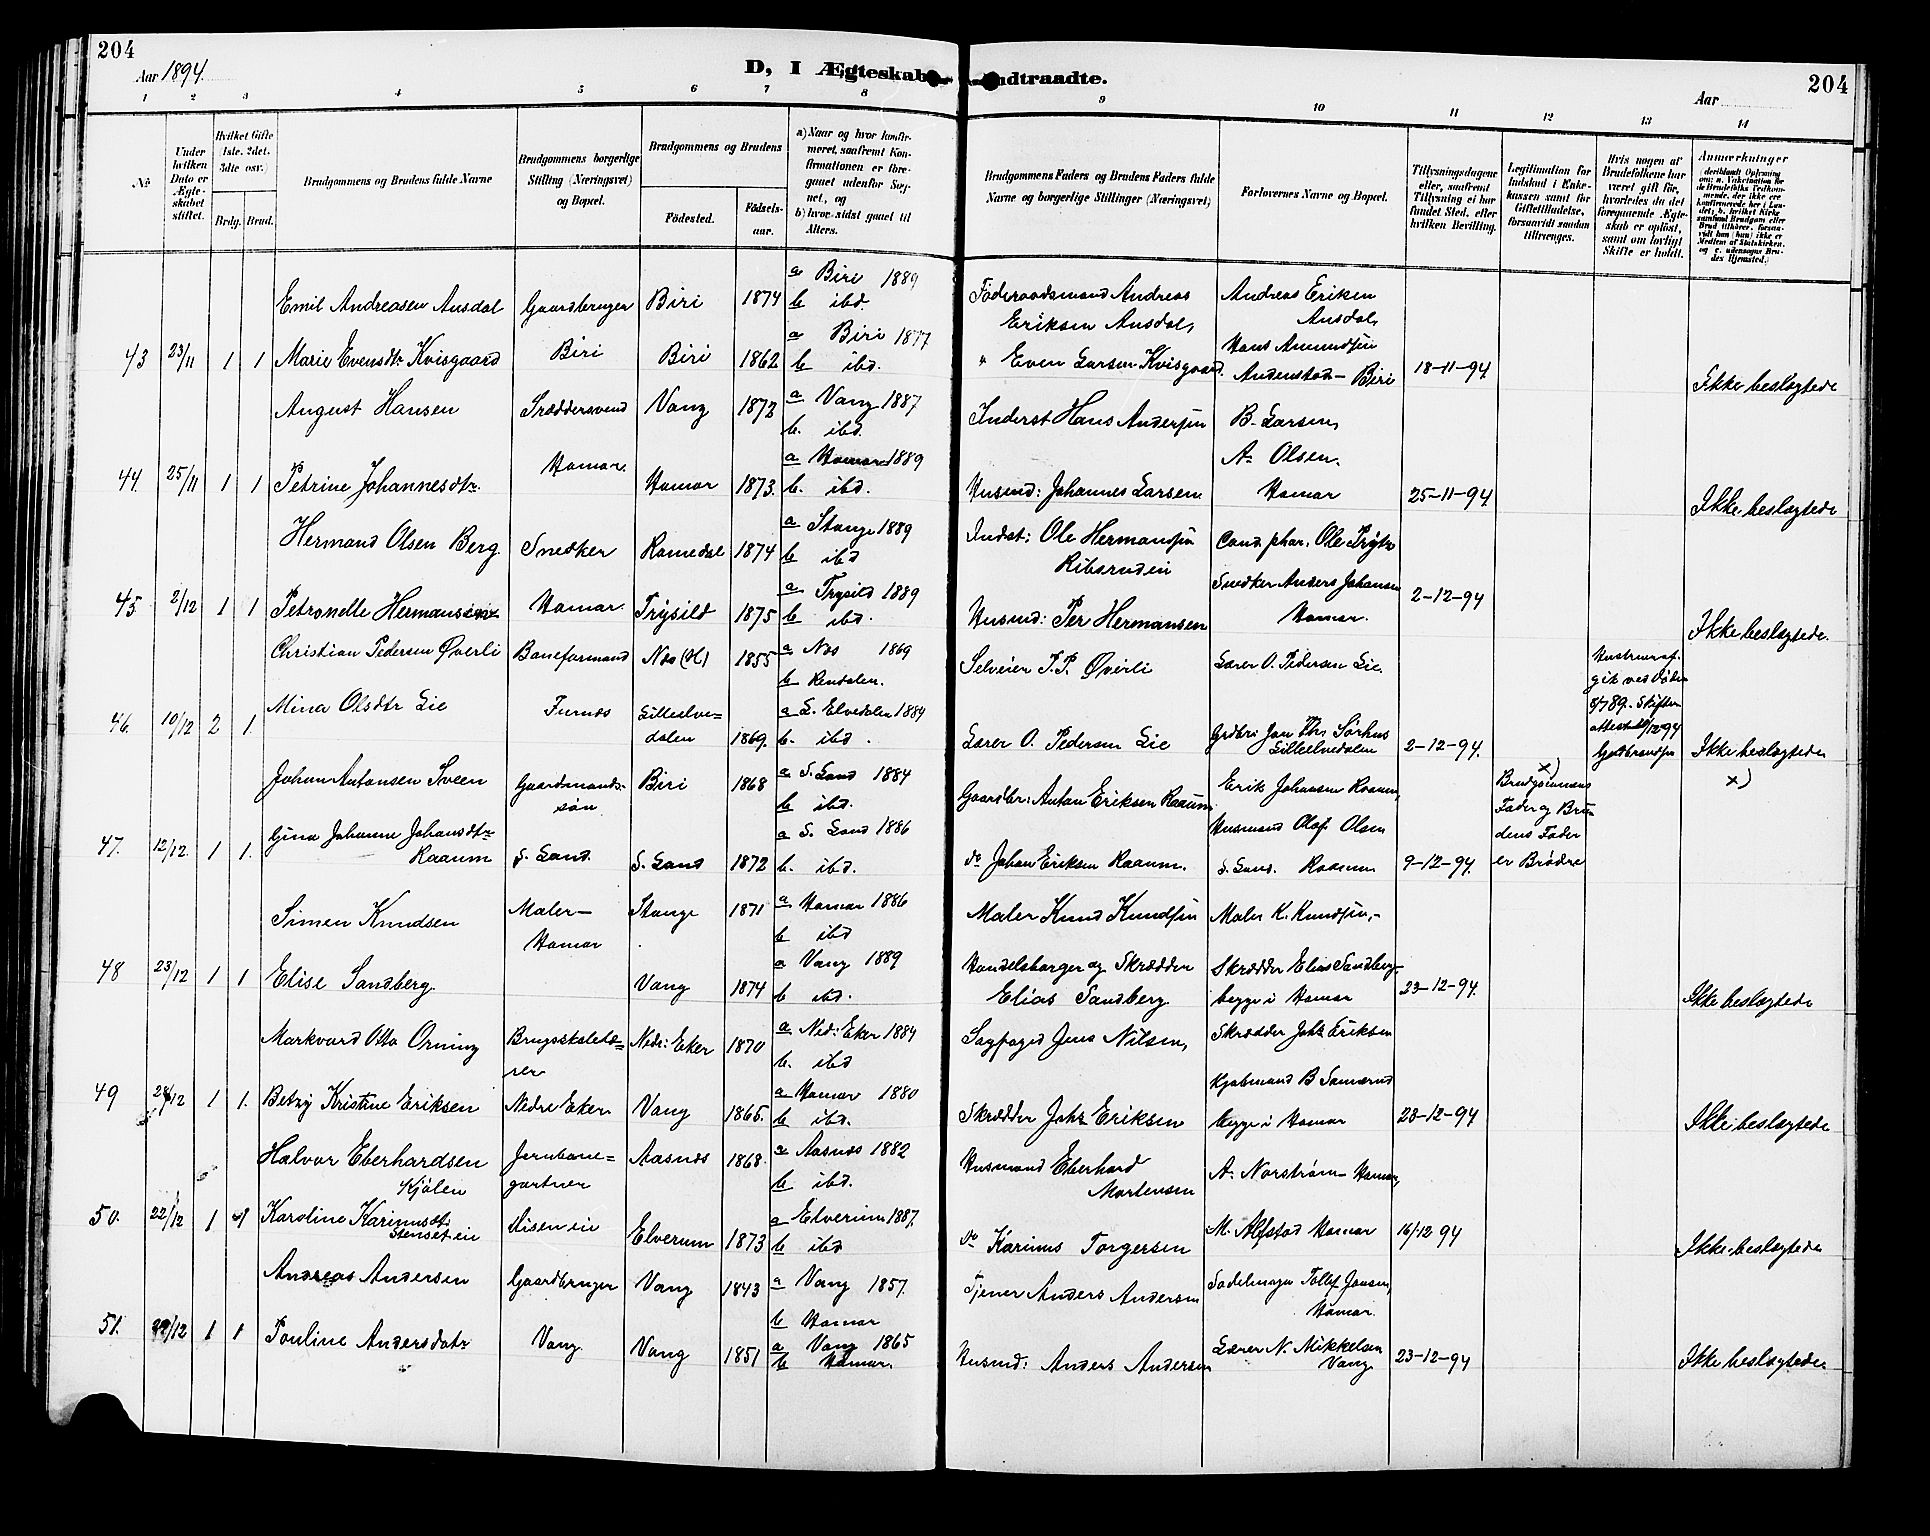 204
Aar 1894.
D, I Ægteskab
ndtraadte.
204
Aar
1 2 3 4 5 6 7 8 9 10 11 12 13 14
No
Under hvilken Dato er Ægteskabet stiftet.
Hvilket Gifte (1ste, 2det, 3dte osv.)
Brdg. Brud.
Brudgommens og Brudens fulde Navne
Brudgommens borgerlige Stilling (Næringsvei) og Bopæl.
Brudgommens og Brudens
Fødested.
Fødselsaar.
a) Naar og hvor konfirmeret, saafremt Konfirmationen er foregaaet udenfor Sognet, og
b) hvor sidst gaaet til Alters.
Brudgommens Faders og Brudens Faders fulde Navne og borgerlige Stillinger (Næringsvei)
Forlovernes Navne og Bopæl.
Tillysningsdagene eller, saafremt Tillysning ei har fundet Sted, efter hvilken Bevilling.
Legitimation for Indskud i Enkekassen samt for Giftetilladelse, forsaavidt saadan tiltrænges.
Hvis nogen af Brudefolkene har været gift før, hvorledes da det foregaaende Ægteskab er opløst, samt om lovligt Skifte er holdt.
Anmærkninger
Emil Andreasen Ansdal Gaardbruger Biri 1874 a Biri 1889 b ibd. Føderaadsmand Andreas Eriksen Ansdal, Andreas Eriken Ansdal,
43 23/11 1 1 Marie Evensdtr Kvisgaard Biri Biri 1862 a Biri 1877 b ibd. " Even Larsen Kvisgaard. Hans Amundsen Andenstad - Biri 18-11-94. Ikke beslægtede
August Hansen Skræddersvend Vang 1872 a Vang 1887 b. ibd. Inderst Hans Andersen B. Larsen,
44. 25/11 1 1 Petrine Johannesdtr. Hamar. Hamar 1873. a Hamar 1889 b. ibd. Husmd: Johannes Larsen A. Olsen. Hamar 25-11-94. Ikke beslægtede
Hermand Olsen Berg. Snedker Romedal 1874 a Stange 1889 b ibd Indst: Ole Hermansen Ribsrudein Cand. phar. Ole Trÿtr
45 2/12 1 1 Petronelle Hermansen Hamar. Trysild 1875 a Trysild 1889 b ibd. Husmd: Per Hermansen Snedker Anders Johansen Hamar. 2-12-94 Ikke beslægtede.
Christian Pedersen Øverli Baneformand Næs (H) 1855 a Næs 1869 b Rendalen. Selveier P.P. Øverli Lærer O. Pedersen Lie.
46. 10/12 2 1. Mina Olsdtr Lie Furnæs Lilleelvedalen 1869. a L. Elvedalen 1884 b. ibd. Lærer O. Pedersen Lie Grdbr: Jon Thr. Sørhus Lilleelvedalen 2-12-94. Ikke beslægtede
Johan Antonsen Sveen Gaardmandssøn Biri 1868 a S. Land 1884 b ibd. Gaardbr: Anton Eriksen Raaum Erik Johansen Raaum, x) Brudgommens Fader og Brudens Fader er Brødre x)
47. 12/12. 1 1. Gina Johanne Johansdtr Raaum S. Land. S. Land 1872 a S. Land 1886 b. ibd. do Johan Eriksen Raaum. Husmand Olaf Olsen S. Land. Raaum 9-12-94.
Simen Knudsen Maler - Hamar Stange 1871 a Hamar 1886 b ibd Maler Knud Knudsen Maler K. Knudsen, -
48 23/12 1 1 Elise Sandberg. Vang 1874 a Vang 1889 b ibd. Handelsborger og Skrædder Elias Sandberg. Skrædder Elias Sandberg - begge i Hamar 23-12-94. Ikke beslægtede
Markvard Otto Orning Brugsskolelærer Nedr: Eker 1870 a Ned: Eker 1884 b. ibd Sagfoged Jens Nilsen, Skrædder Johs Eriksen
49 28/12 1 1. Betzy Kristine Eriksen Nedre Eker Vang 1865. a Hamar 1880 b ibd. Skrædder Johs Eriksen Kjøbmand B Samerud begge i Hamar 23-12-94 Ikke beslægtede
Halvor Eberhardsen Kjølen Jernbanegartner Aasnæs 1868. a Aasnæs 1882 b ibd. Husmand Eberhard Mortensen A. Norstrøm - Hamar,
50. 22/12 1 1 Karoline Karinusdtr Stenseteie Disen eie Elverum 1873 a Elverum 1887. b ibd do Karinus Torgersen M. Alfstad Hamar 16/12 94 Ikke beslægtede
Andreas Andersen Gaardbruger Vang 1843 a Vang 1857. b Hamar Tjener Anders Andersen Sadelmager Tollef Jonsen, Hamar.
51. 29/12 1 1 Pouline Andersdatr Vang. Vang 1851 a Vang 1865 b Hamar. Husmd: Anders Andersen Lærer N. Mikkelsen Vang 23-12-94 Ikke beslægtede